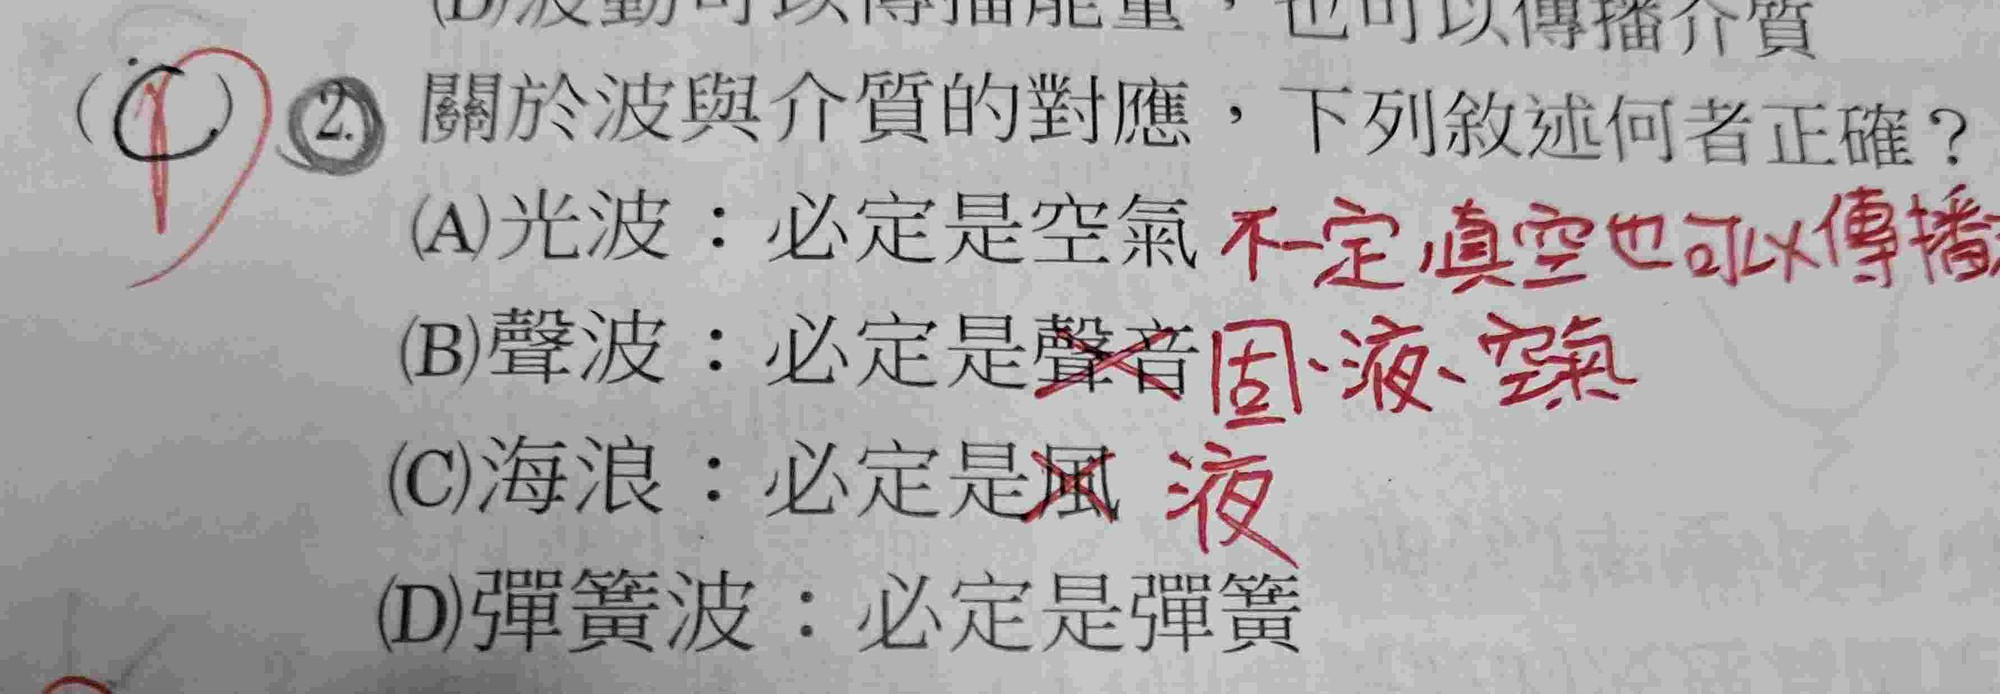 (D)波動可以傳播能量，也可以傳播介質
(C) 2. 關於波與介質的對應，下列敘述何者正確？
(A)光波：必定是空氣 不一定,真空也可以傳播
(B)聲波：必定是聲音 固、液、空氣
(C)海浪：必定是風 液
(D)彈簧波：必定是彈簧